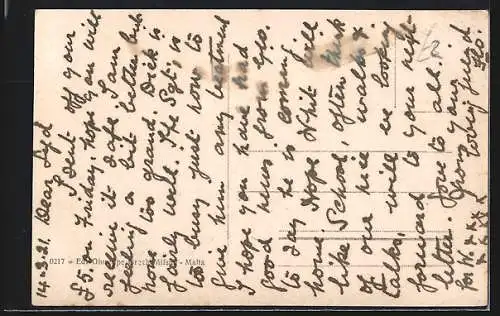 14.3.21. Dear Syd
I sent off your
£5. on Friday, hope you will
receive it safe. I am
feeling a bit better but
not too grand. Dick is
fairly well. The Sgt. is
too busy just now to
give him any treatment
I hope you have had
good news from Geo.
to day he is coming
Hope Whit will
like School, often think
of our nice walks &
talks, will be looking
forward to your next
letter. Love to all.
from your
loving friend
Flo.
for W. x x x x
x x x x x
0217 - Malta